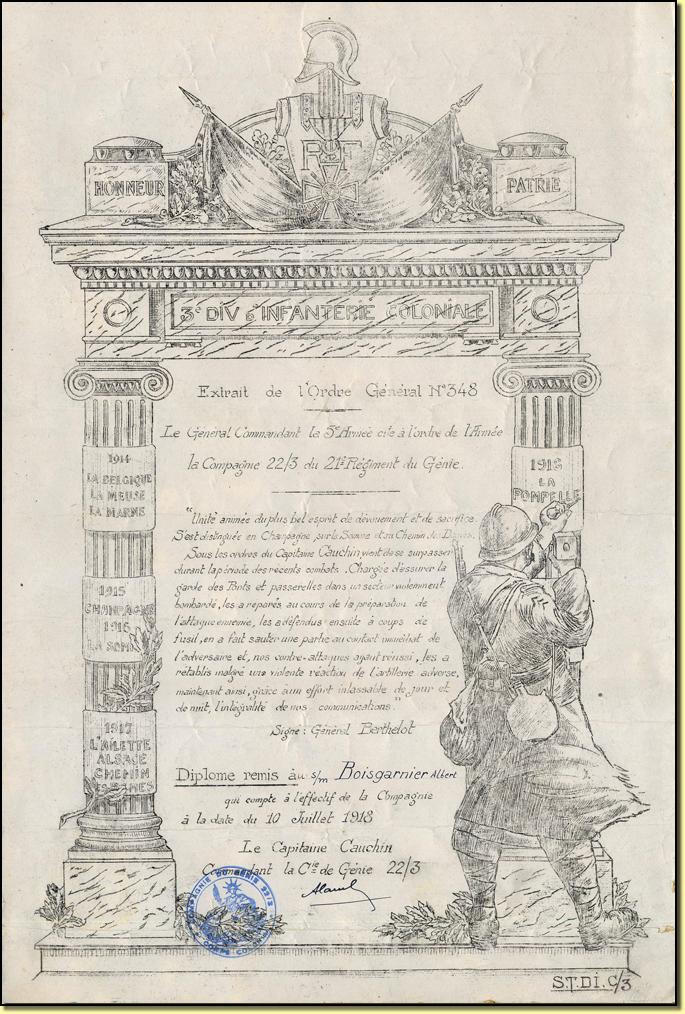 HONNEUR
RF
PATRIE
3e DIV 6e INFANTERIE COLONIALE
Extrait de l'Ordre Général No 348
Le Général Commandant la 5e Armée cite à l'ordre de l'Armée
la Compagnie 22/3 du 21e Régiment du Génie.
1914
LA BELGIQUE
LA MEUSE
LA MARNE
1915
CHAMPAGNE
1916
LA SOMME
1917
L'AILETTE
ALSACE
CHEMIN
DAMES
1918
LA
POMPELLE
"Unité animée du plus bel esprit de dévouement et de sacrifice.
S'est distinguée en Champagne, sur la Somme et au Chemin des Dames.
Sous les ordres du Capitaine Cauchin vient de se surpasser
durant la période des récents combats. Chargée d'assurer la
garde des Ponts et passerelles dans un secteur violemment
bombardé, les a réparés au cours de la préparation de
l'attaque ennemie, les a défendus ensuite à coups de
fusil, en a fait sauter une partie au contact immédiat de
l'adversaire et, nos contre-attaques ayant réussi, les a
rétablis malgré une violente réaction de l'artillerie adverse,
maintenant ainsi, grâce à un effort inlassable de jour et
de nuit, l'intégralité de nos communications."
Signé: Général Berthelot
Diplome remis au s/m Boisgarnier Albert
qui compte à l'effectif de la Compagnie
à la date du 10 Juillet 1918
Le Capitaine Cauchin
Commandant la Cie de Génie 22/3
COMPAGNIE DU GENIE 22/3
CORPS COLONIAL
S.T.DI.C/3